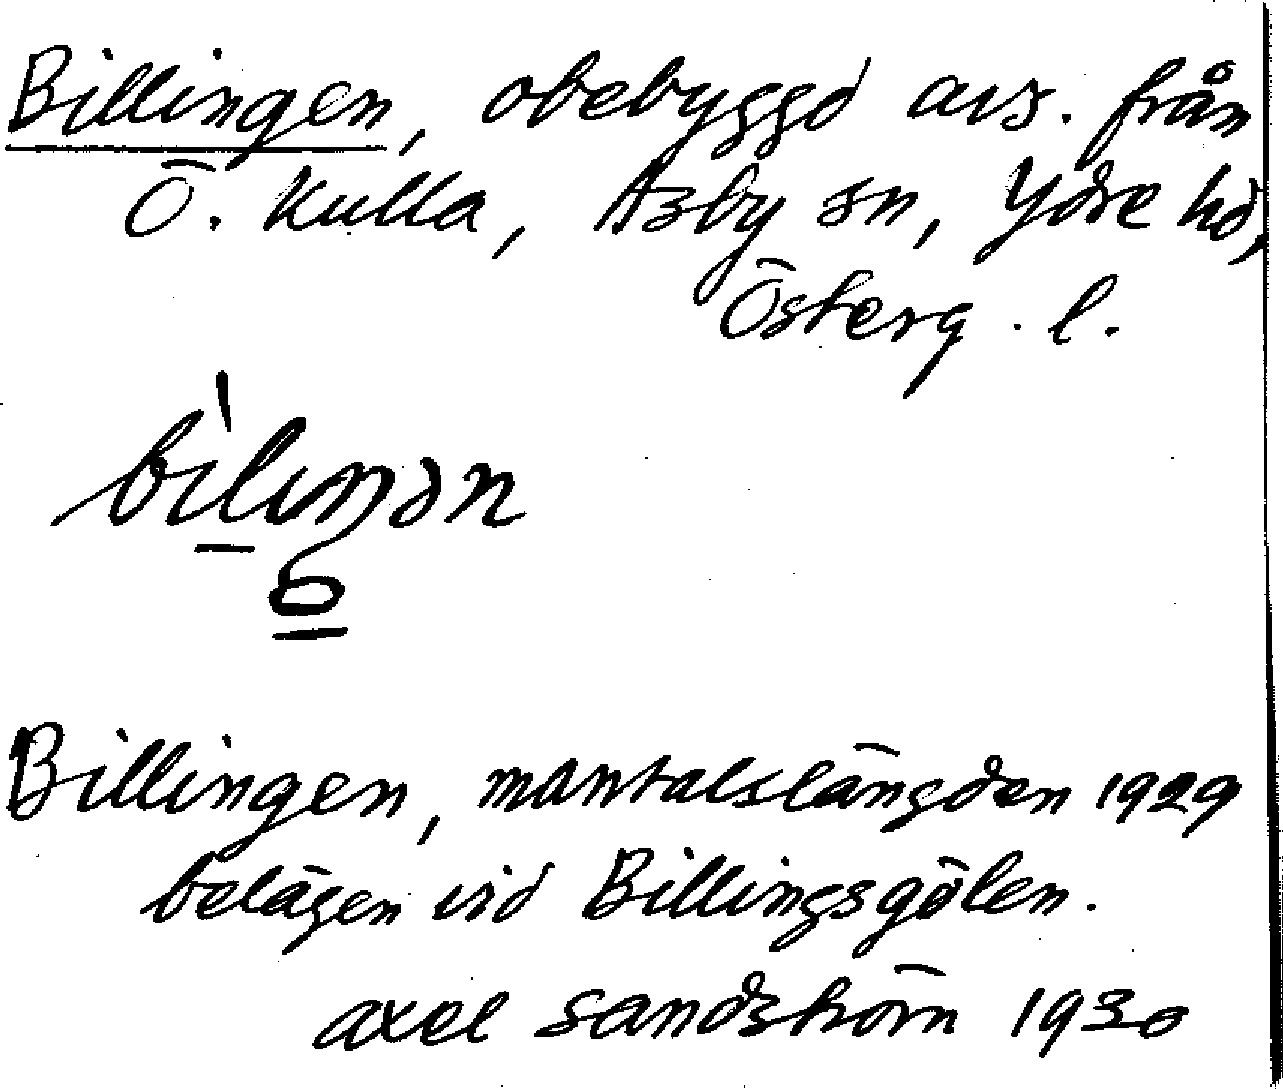 Billingen, obebyggd avs. från
Ö. Kulla, Asby sn, Ydre hd,
Österg. l.
Billingen, mantalslängden 1929
belägen vid Billingsgölen.
axel sandström 1930